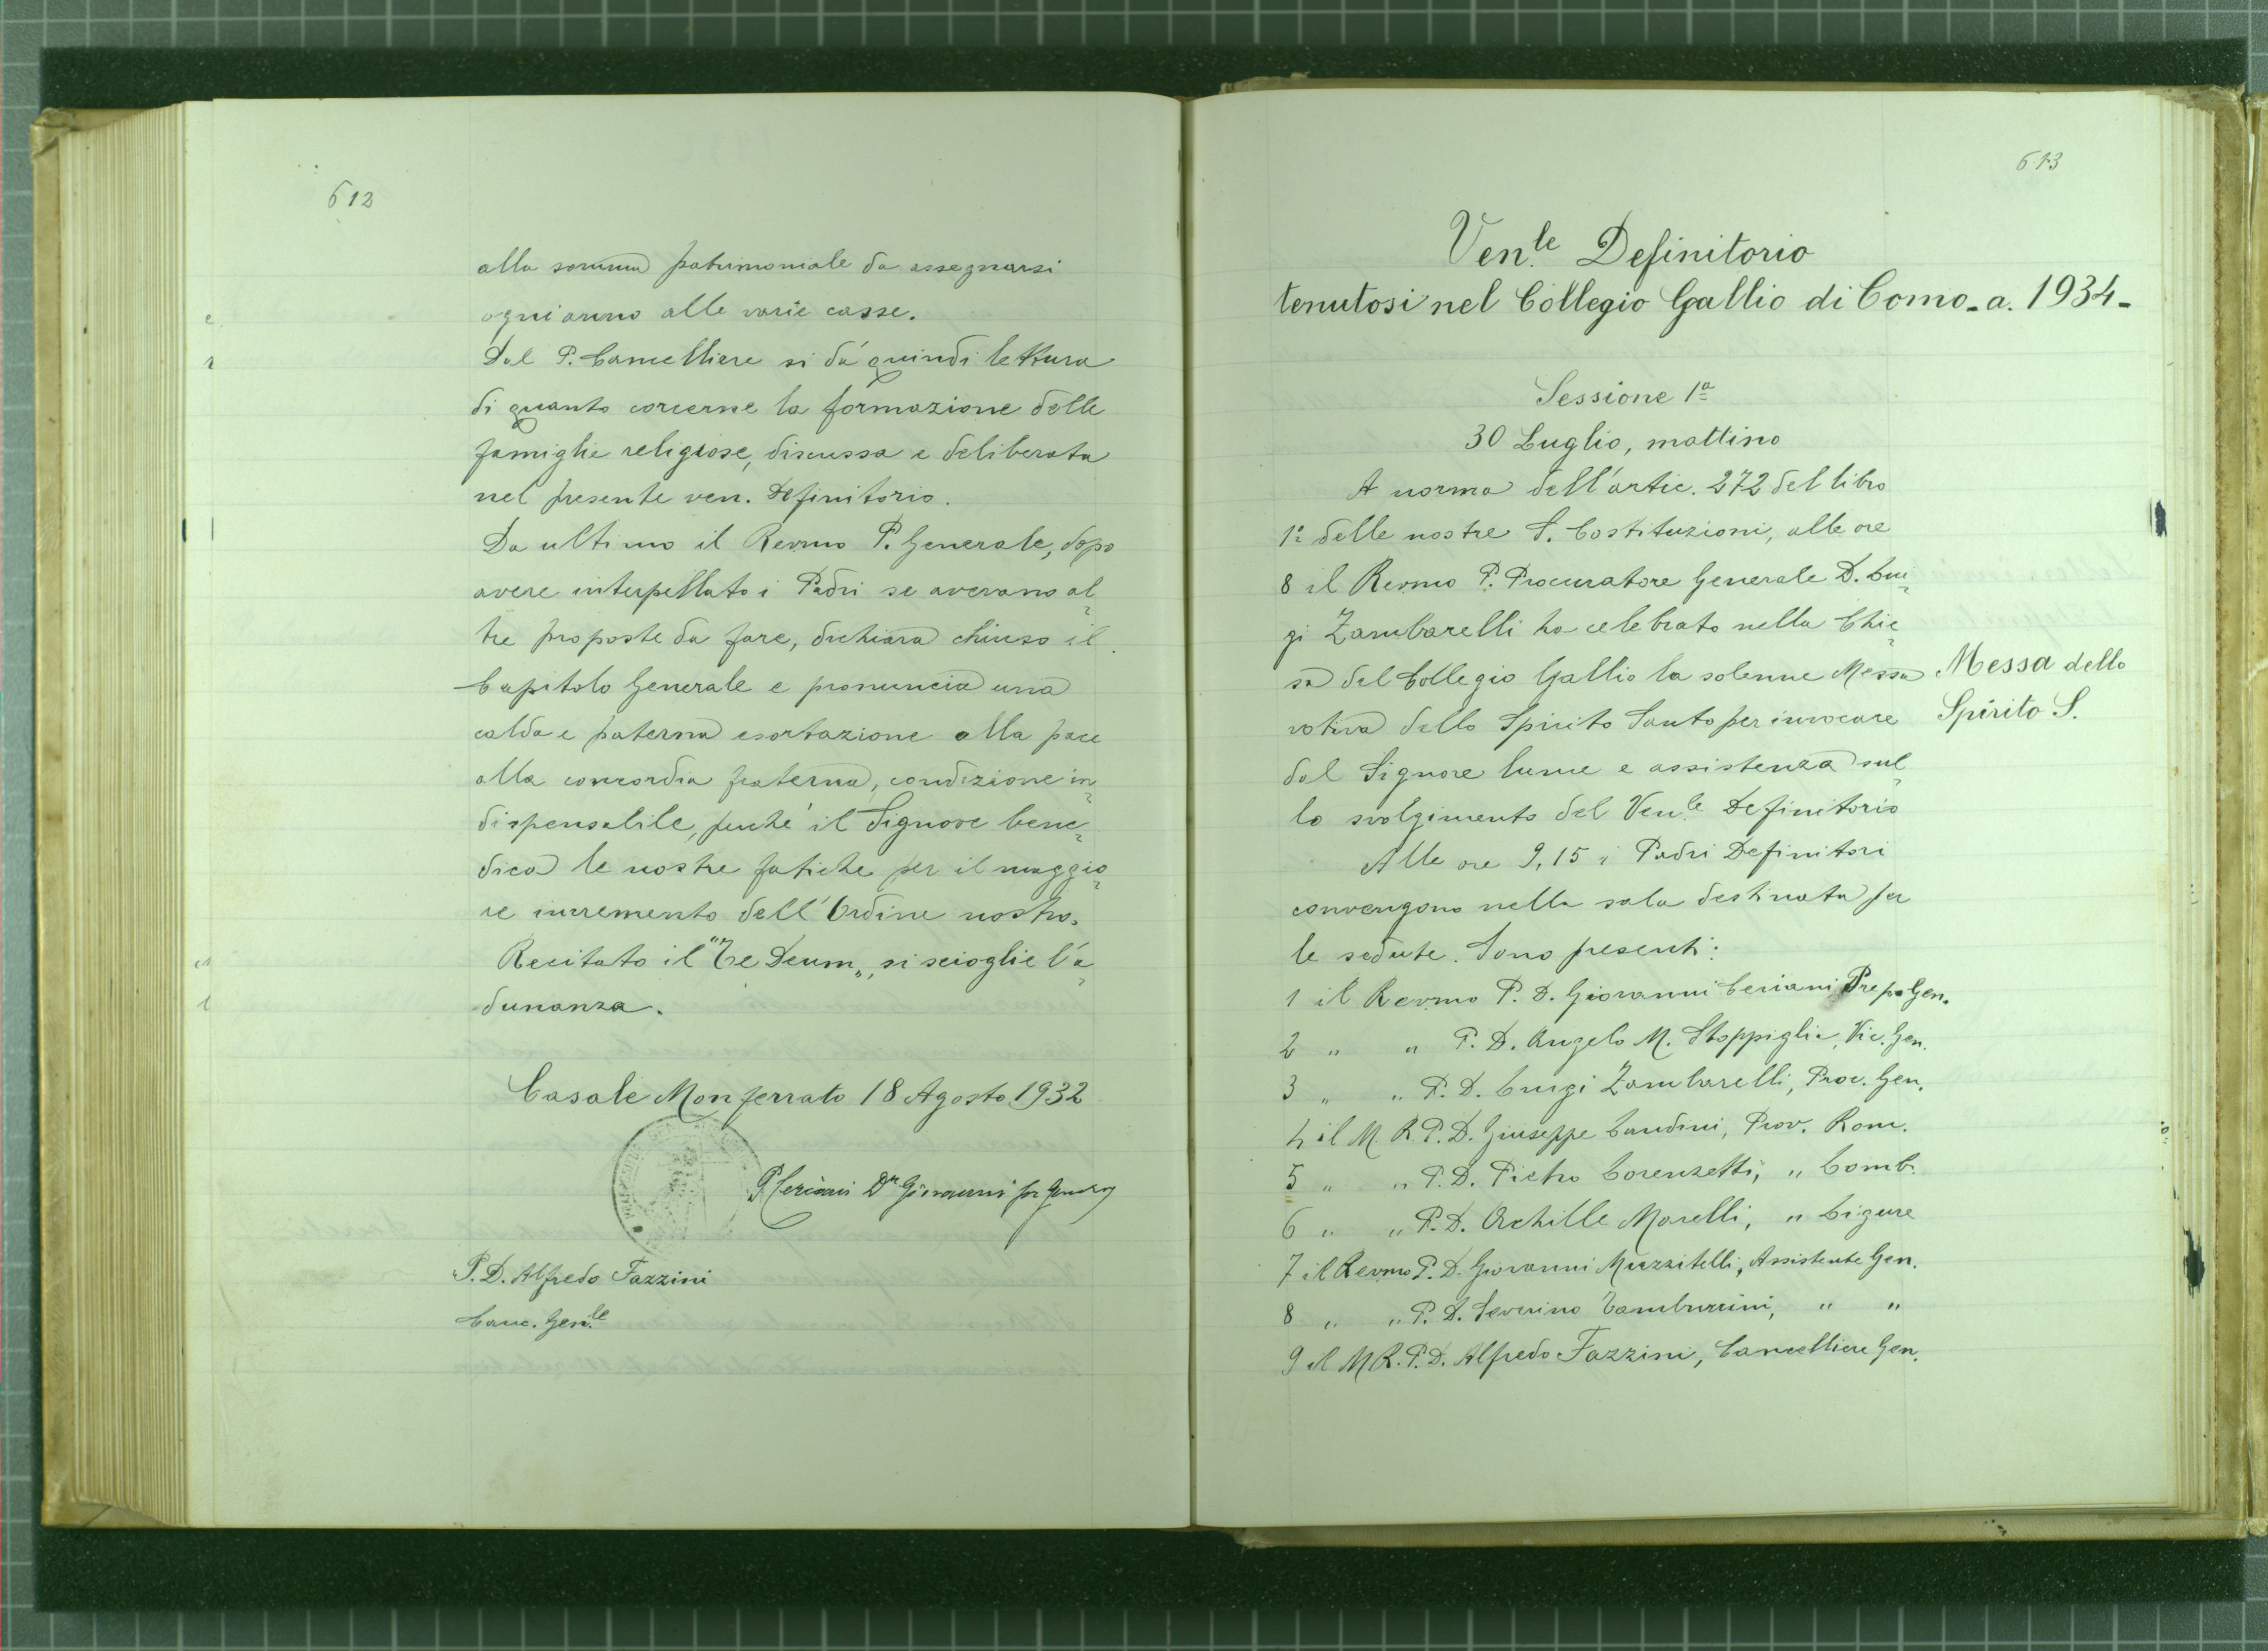 612
alla somma patrimoniale da assegnarsi
ogni anno alle varie casse.
Dal P. Cancelliere si dà quindi lettura
di quanto concerne la formazione delle
famiglie religiose, discussa e deliberata
nel presente ven. Definitorio.
Da ultimo il Revmo P. Generale, dopo
avere interpellato i Padri se avevano al=
tre proposte da fare, dichiara chiuso il
Capitolo Generale e pronuncia una
calda e paterna esortazione alla pace
alla concordia fraterna, condizione in=
dispensabile, perché il Signore bene=
dica le nostre fatiche per il maggio=
re incremento dell'Ordine nostro.
Recitato il "Te Deum„, si scioglie l'a=
dunanza.
Casale Monferrato 18 Agosto 1932
P. Ceriani Dr Giovanni
P. D. Alfredo Fazzini
Canc. Gen.le
613
Ven.le Definitorio
tenutosi nel Collegio Gallio di Como - a. 1934 -
Sessione 1a
30 Luglio, mattino
A norma dell'artic. 272 del libro
1o delle nostre S. Costituzioni, alle ore
8 il Revmo P. Procuratore Generale D. Lui=
gi Zambarelli ha celebrato nella Chie=
sa del Collegio Gallio la solenne Messa
Messa dello
votiva dello Spirito Santo per invocare
Spirito S.
dal Signore lume e assistenza sul=
lo svolgimento del Ven.le Definitorio
Alle ore 9,15 i Padri Definitori
convengono nella sala destinata per
le sedute. Sono presenti:
1 il Revmo P. D. Giovanni Ceriani Prep. Gen.
2 " " P. D. Angelo M. Stoppiglia, Vic. Gen.
3 " " P. D. Luigi Zambarelli, Proc. Gen.
4 il M. R. P. D. Giuseppe Landini, Prov. Rom.
5 " " P. D. Pietro Lorenzetti, " Lomb.
6 " " P. D. Achille Marelli, " Ligure
7 il Revmo P. D. Giovanni Muzzitelli, Assistente Gen.
8 " " P. D. Severino Tamburrini, " "
9 il M R. P. D. Alfredo Fazzini, Cancelliere Gen.